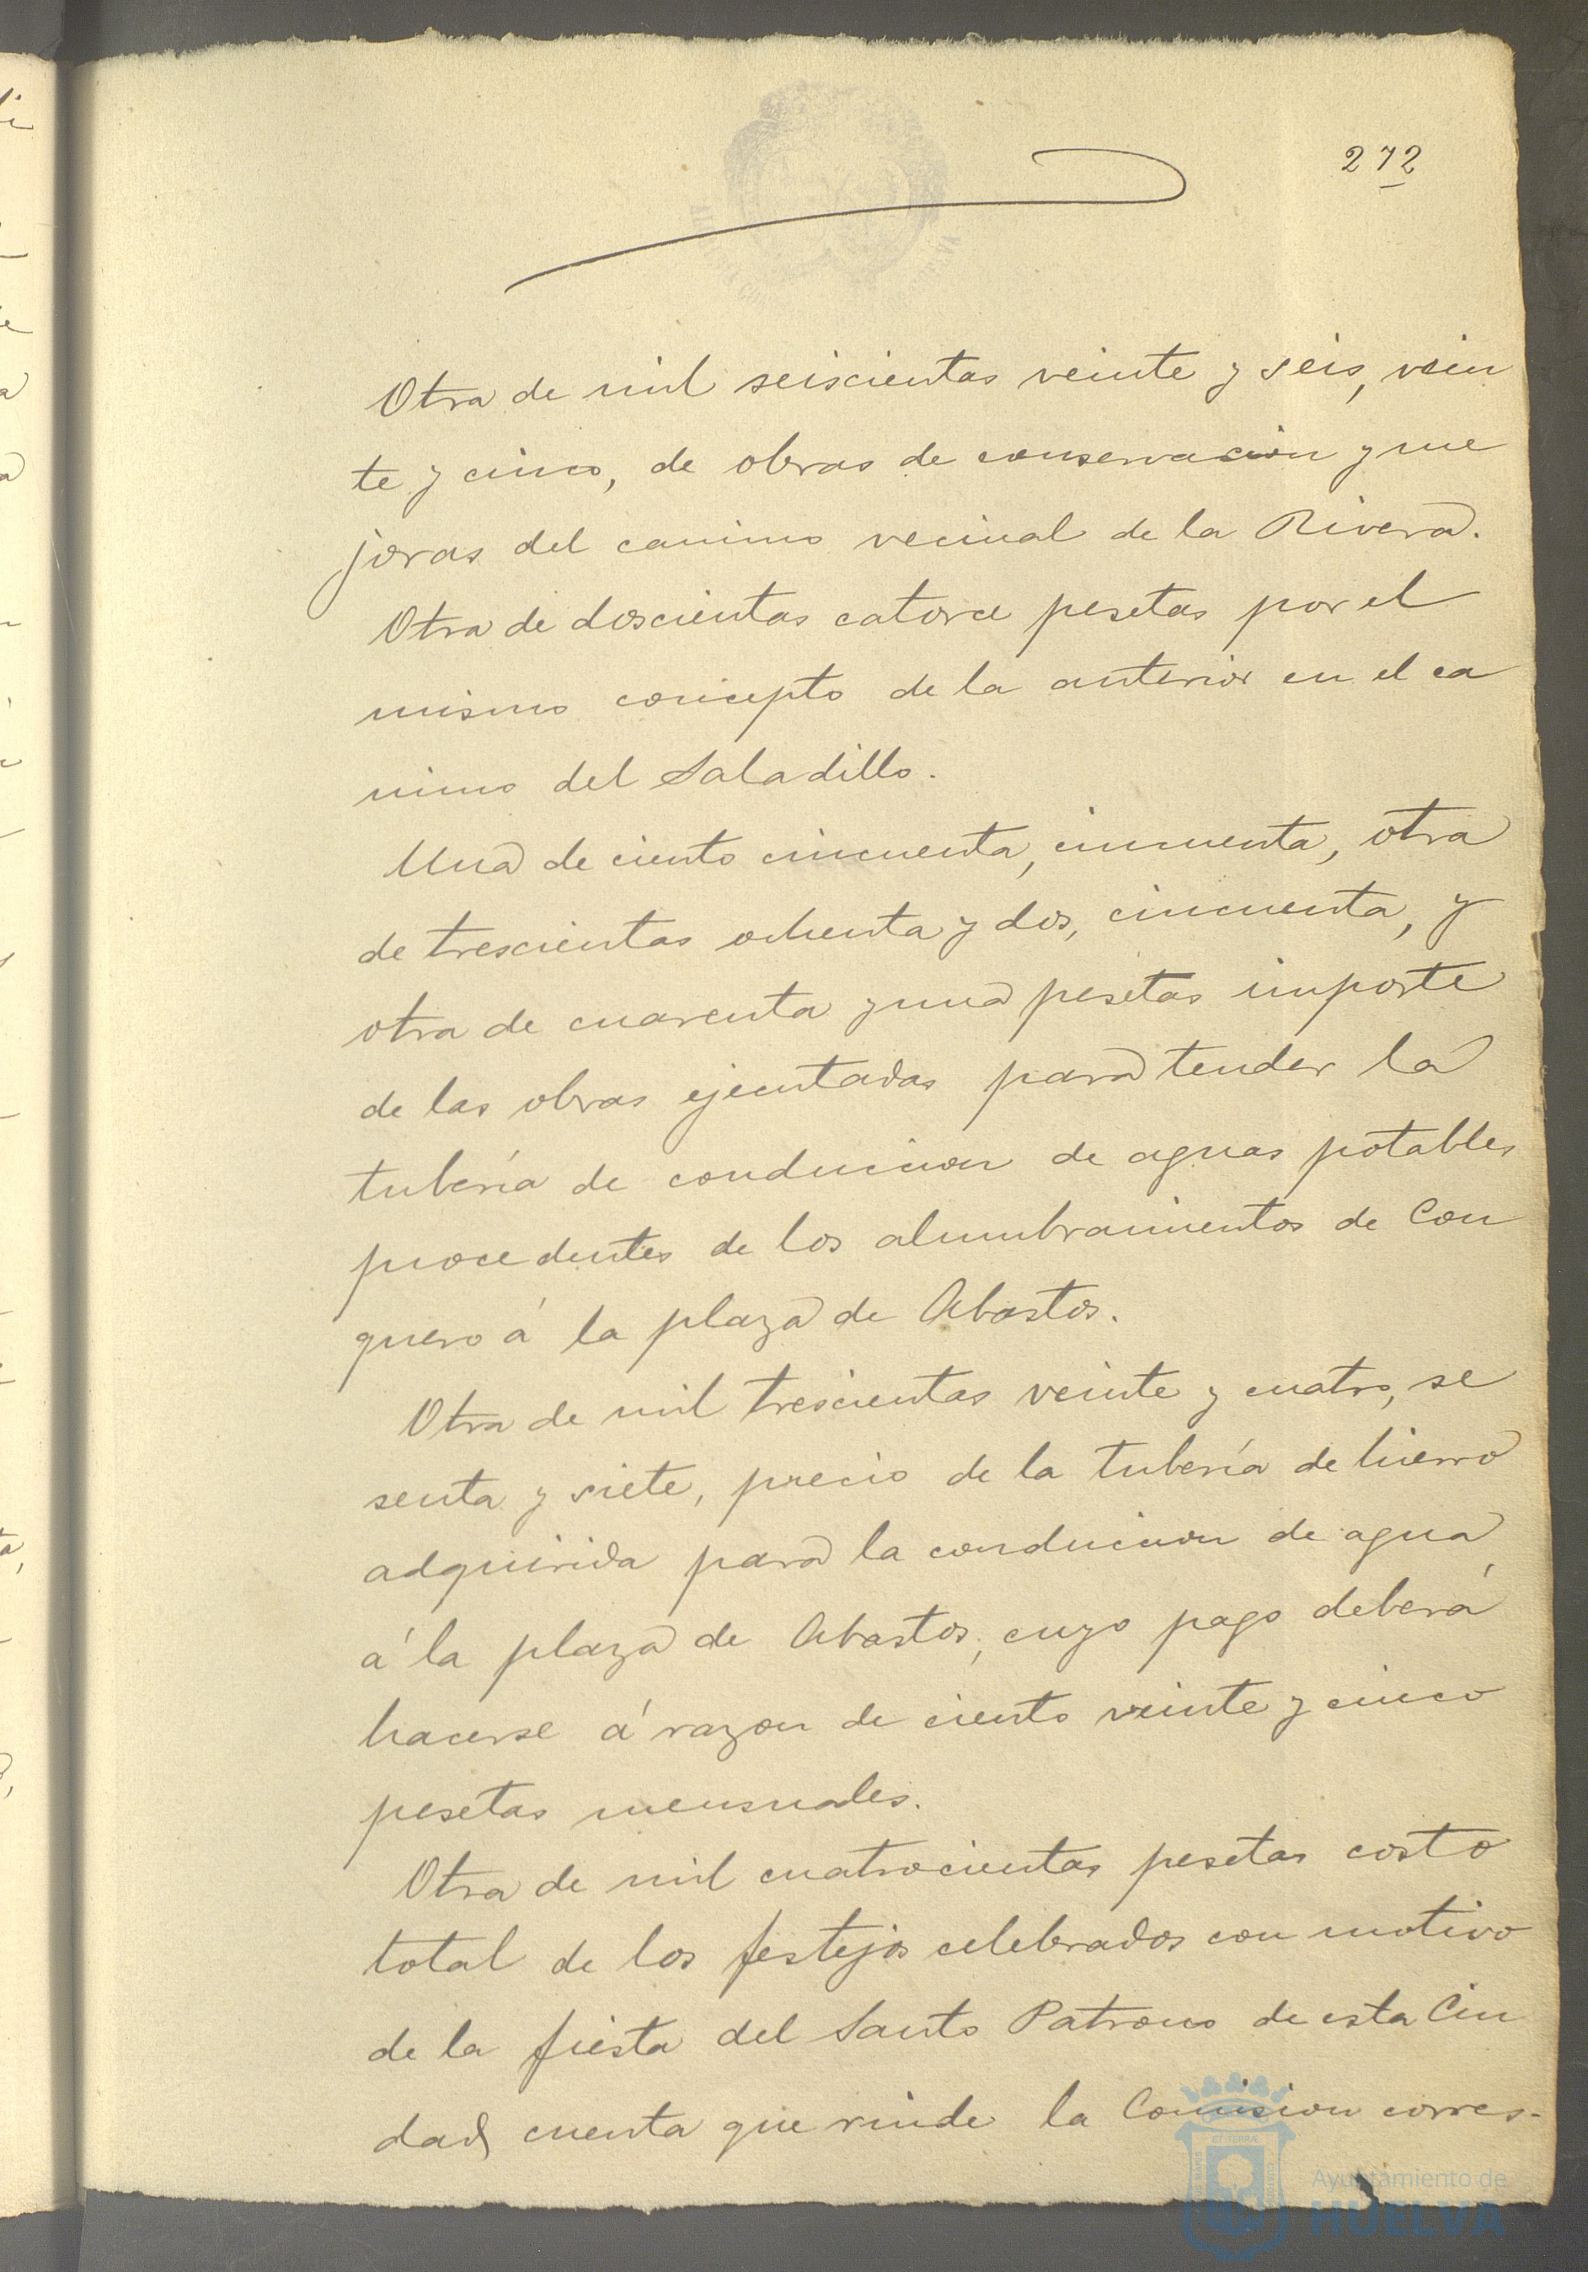 272
Otra de mil seiscientas veinte y seis, vein
te y cinco, de obras de conservacion y me
joras del camino vecinal de la Rivera.
Otra de doscientas catorce pesetas por el
mismo concepto de la anterior en el ca
mino del Saladillo.
Una de ciento cincuenta, cincuenta, otra
de trescientas ochenta y dos, cincuenta, y
otra de cuarenta y una pesetas importe
de las obras ejecutadas para tender la
tubería de conduccion de aguas potables
procedentes de los alumbramientos de Con
quero á la plaza de Abastos.
Otra de mil trescientas veinte y cuatro, se
senta y siete, precio de la tubería de hierro
adquirida para la conduccion de agua
á la plaza de Abastos, cuyo pago deberá
hacerse á razon de ciento veinte y cinco
pesetas mensuales.
Otra de mil cuatrocientas pesetas costo
total de los festejos celebrados con motivo
de la fiesta del Santo Patrono de esta Ciu
dad, cuenta que rinde la Comision corres-
Ayuntamiento de
HUELVA